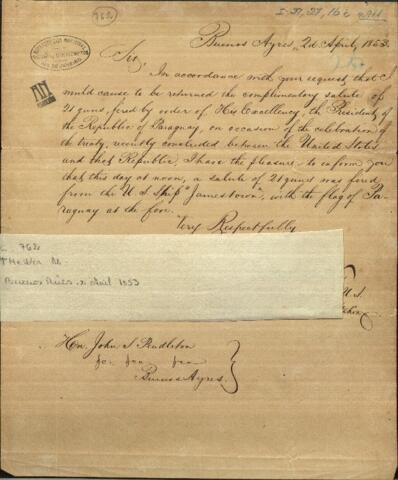 762
I-31,27,16
Buenos Ayres, 2d April, 1853.
Sir,
In accordance with your request, that I
would cause to be returned the complimentary salute of
21 guns, fired by order of His Excellency, the President of
the Republic of Paraguay, on occasion of the celebration of
the treaty, recently concluded between the United States
and that Republic, I have the pleasure to inform you
that this day at noon, a salute of 21 guns was fired
from the U S Ship "Jamestown", with the flag of Pa-
raguay at the fore.
Very Respectfully
762
Buenos Aires abril 1853
U. S.
Hon. John S Pendleton
Buenos Ayres.